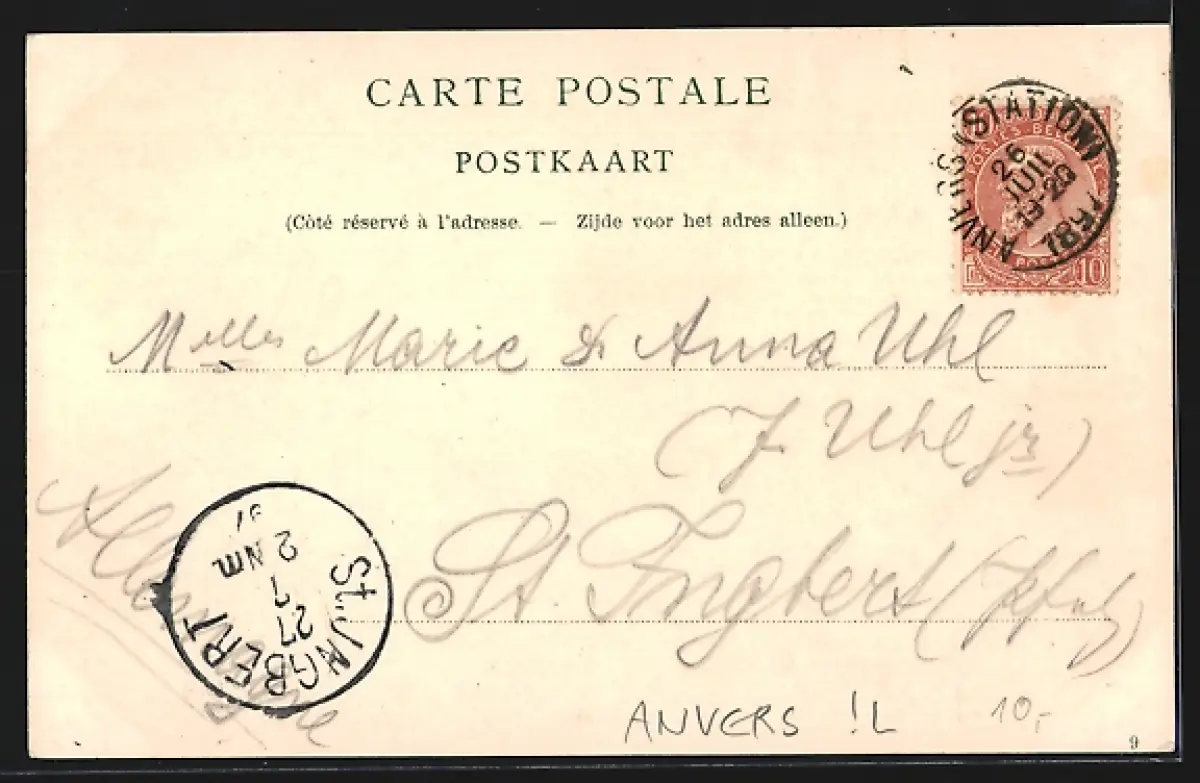 CARTE POSTALE
POSTKAART
(Côté réservé à l'adresse. — Zijde voor het adres alleen.)
POSTES BELG
10
ANVERS (STATION)
26
JUIL
19-20
1897
Melles Marie & Anna Uhl
(J. Uhl jr)
St. Ingbert (Pfalz)
Allemagne
St. JNGBERT
27
7
2 Nm.
97
ANVERS !L
10,-
9